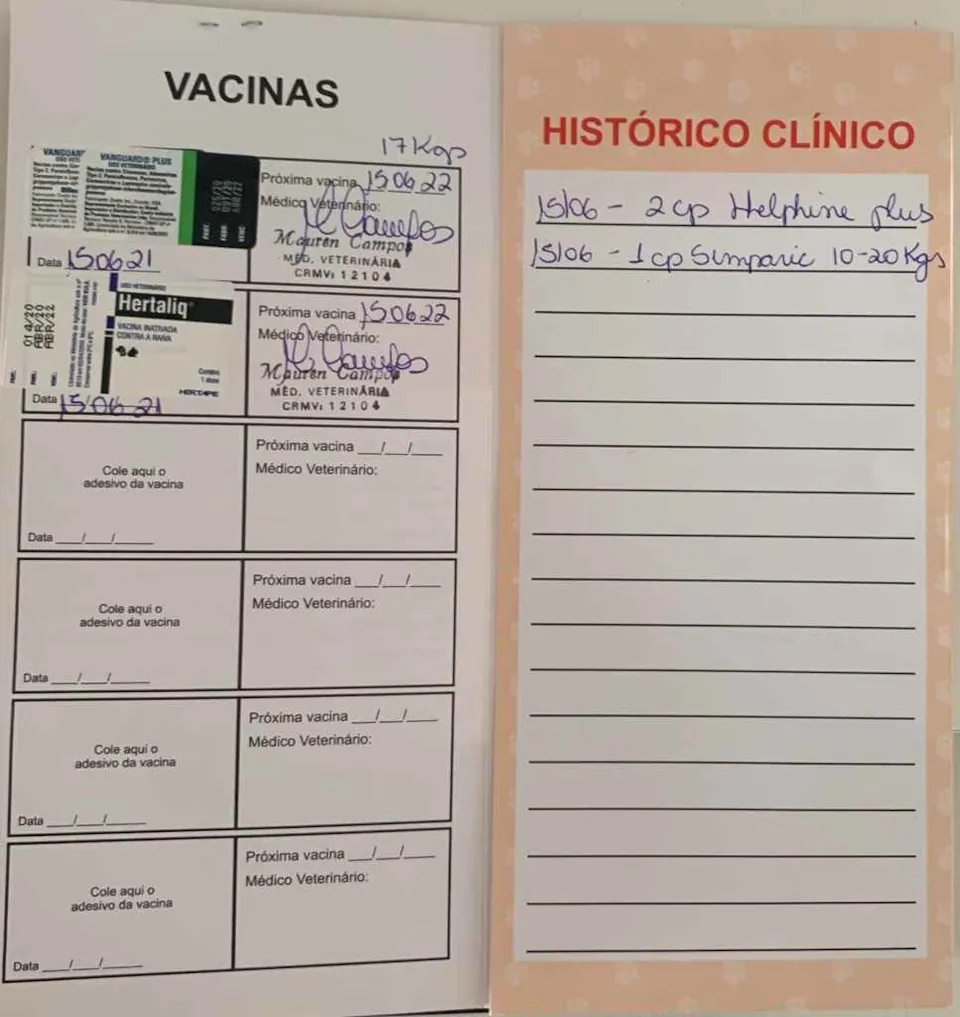 VACINAS
17 Kgs
VANGUARD® PLUS
USO VETERINÁRIO
025/20
ABR/22
PART.
FABR.
VENC.
Próxima vacina 15 06 22
Médico Veterinário:
Mauren Campos
MÉD. VETERINÁRIA
CRMV: 12104
Data 15 06 21
USO VETERINÁRIO
Hertaliq
VACINA INATIVADA
CONTRA A RAIVA
Contém
1 dose
HERTAPE
014/20
ABR/20
ABR/22
Próxima vacina 15 06 22
Médico Veterinário:
Mauren Campos
MÉD. VETERINÁRIA
CRMV: 12104
Data 15/06 21
Cole aqui o
adesivo da vacina
Data ___/___/_____
Próxima vacina ___/___/____
Médico Veterinário:
Cole aqui o
adesivo da vacina
Data ___/___/_____
Próxima vacina ___/___/____
Médico Veterinário:
Cole aqui o
adesivo da vacina
Data ___/___/_____
Próxima vacina ___/___/____
Médico Veterinário:
Cole aqui o
adesivo da vacina
Data ___/___/_____
Próxima vacina ___/___/____
Médico Veterinário:
HISTÓRICO CLÍNICO
15/06 - 2 cp Helphine plus
15/06 - 1 cp Simparic 10-20 Kgs